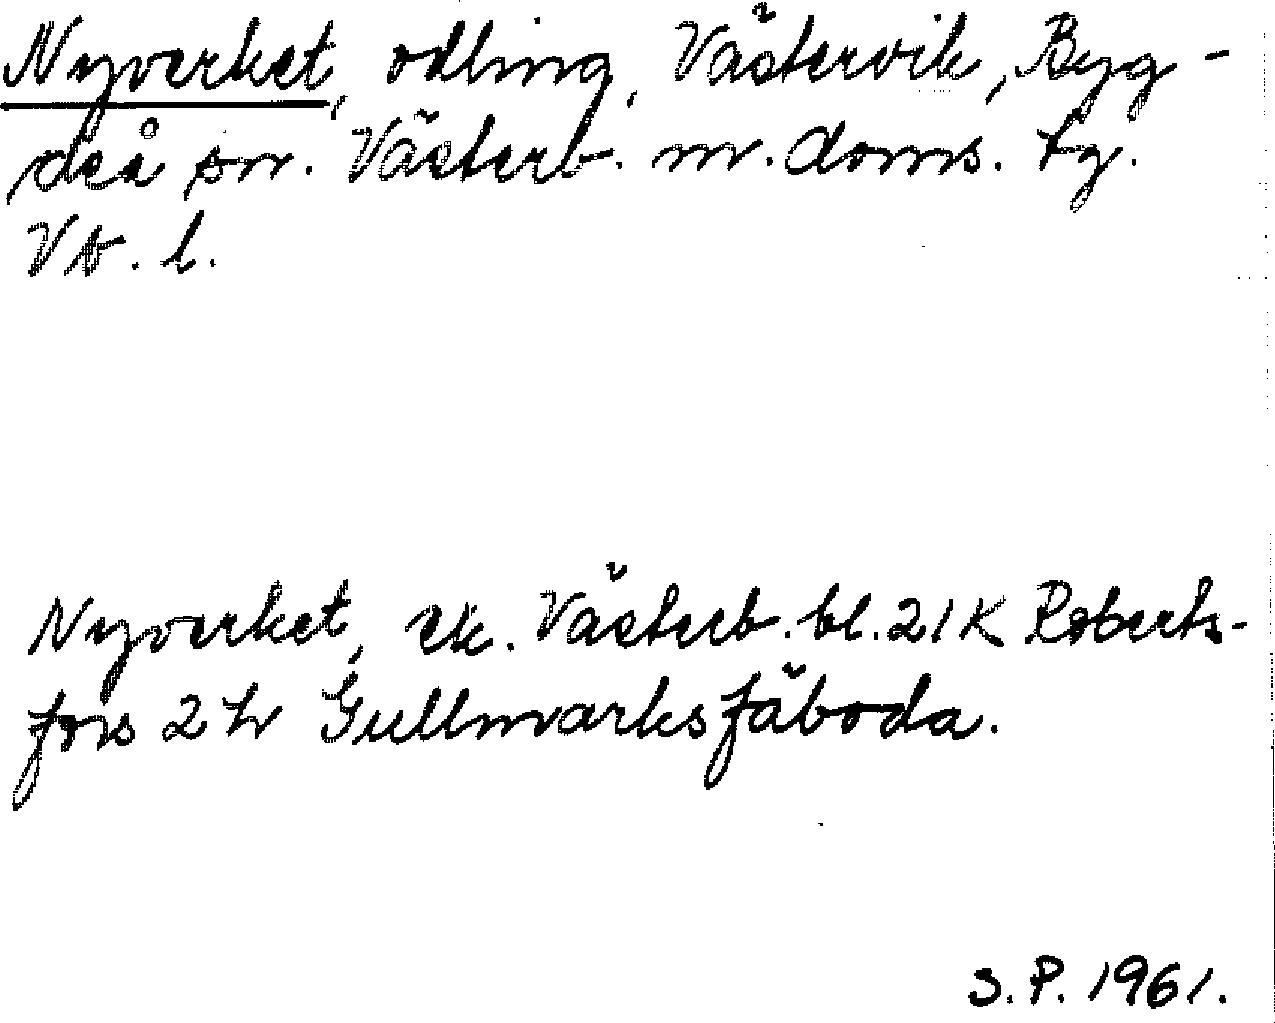 Nyverket, odling, Västervik, Byg-
deå sn. Västerb. m. doms. tg.
Vb. l.
Nyverket, ek. Västerb. bl. 21K Roberts-
fors 2 h Gullmarksfäboda.
S.P. 1961.